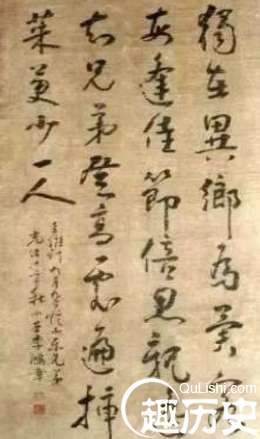 獨在異鄉為異客
每逢佳節倍思親遙
知兄弟登高處遍插
茱萸少一人
王維詩九月九日憶山東兄弟
光緒 秋 李鴻章
QuLiShi.com
趣历史